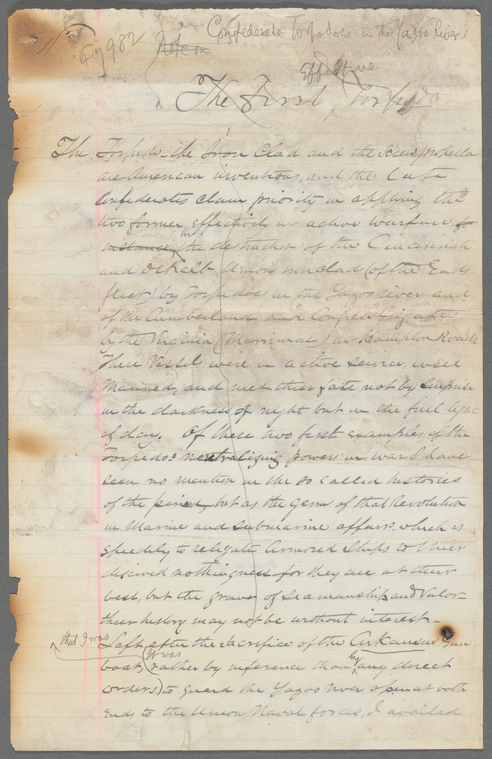 Confederate torpedoes in the Yazoo River.
Fy 982
Note on
Effective
The First Torpedo
The Torpedo the Iron Clad and the Screw propeller
are American inventions, and the late
Confederates claim priority in applying the
two former effectively in active warfare for
instance, the destruction of the Cincinnati
and DeKalb Union ironclad (of the Eads
fleet) by Torpedoes in the Yazoo river and
of the Cumberland and Congress
by the Virginia (Merrimac) in Hampton Roads
These vessels were in active service, well
manned, and met their fate not by surprise
in the darkness of night but in the full light
of day. Of these two first examples of the
torpedo's neutralizing power in war I have
seen no mention in the so called histories
of the period, but as the germ of that Revolution
in Marine and submarine affairs, which is
speedily to relegate Armored Ships to their
deserved nothingness for they are at their
best, but the graves of seamanship and valor
their history may not be without interest—
that I was
Left after the sacrifice of the Arkansas gun
boat, (it was rather by inference than by any direct
orders) to guard the Yazoo river open at both
ends to the Union Naval forces, I availed